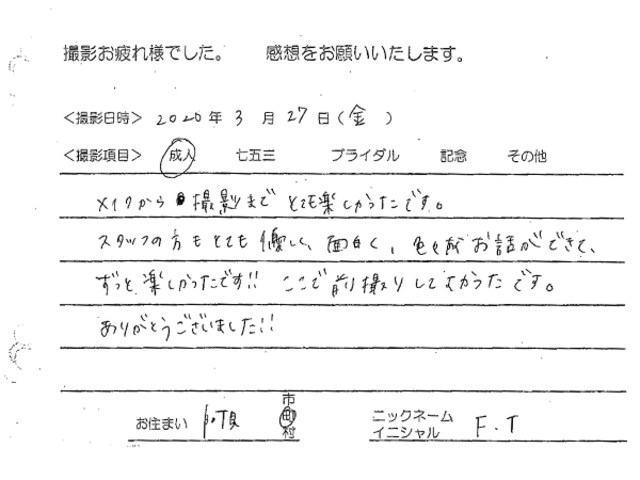 撮影お疲れ様でした。 感想をお願いいたします。
<撮影日時> 2020年 3月 27日(金)
<撮影項目> 成人 七五三 ブライダル 記念 その他
メイクから撮影までとても楽しかったです。
スタッフの方もとても優しく、面白く、色々なお話ができて、
ずっと楽しかったです!! ここで前撮りしてよかったです。
ありがとうございました!!
お住まい 市町村
ニックネーム
イニシャル F.T